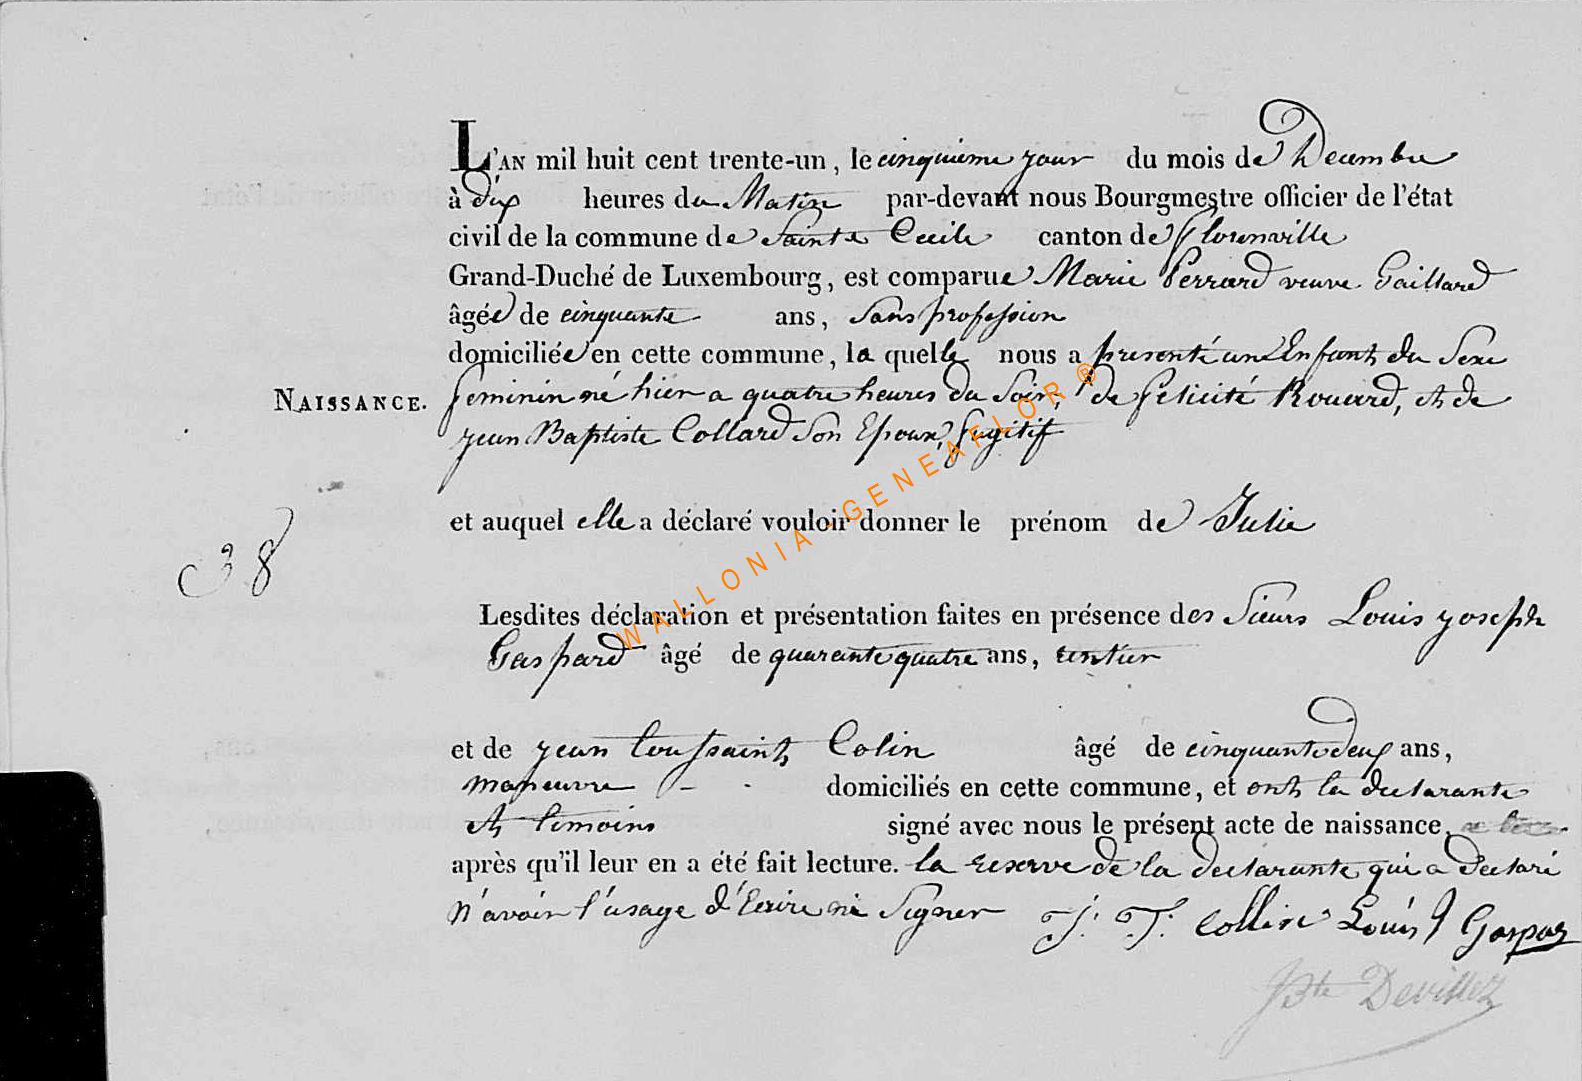 L'AN mil huit cent trente-un, le cinquieme jour du mois de Decembre
à dix heures du Matin par-devant nous Bourgmestre officier de l'état
civil de la commune de Sainte Cecile canton de Florenville
Grand-Duché de Luxembourg, est comparue Marie Perrard veuve Gaillard
âgée de cinquante ans, Sans profession
domiciliée en cette commune, la quelle nous a presenté un Enfant du Sexe
NAISSANCE. feminin né hier a quatre heures du Soir, de Felicité Rouard, et de
jean Baptiste Collard Son Epoux, fugitif
et auquel elle a déclaré vouloir donner le prénom de Julie
38
Lesdites déclaration et présentation faites en présence des Sieurs Louis joseph
Gaspard âgé de quarante quatre ans, rentier
et de jean toussaint Colin âgé de cinquante deux ans,
maneuvre - - domiciliés en cette commune, et ont la declarante
et temoins signé avec nous le présent acte de naissance,
après qu'il leur en a été fait lecture. la reserve de la declarante qui a declaré
n'avoir l'usage d'Ecrire ni Signer J. T. Collin Louis J Gaspar
JBte Devillez
WALLONIA-GENEAFLOR ®